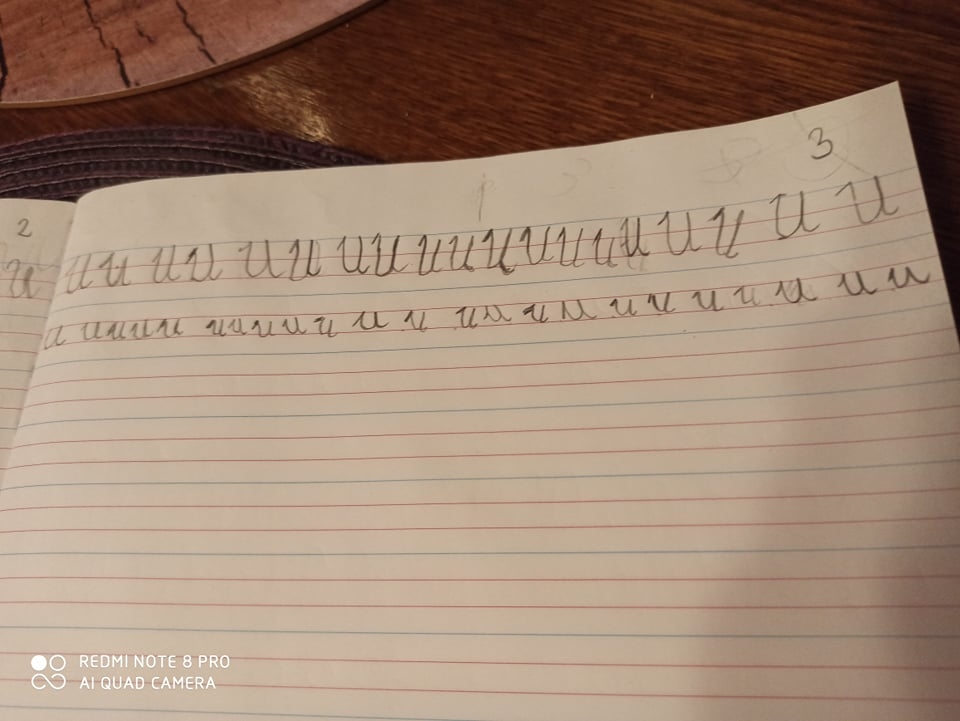 2
U
3
U U U U U U U U U U U U U U U U U U U
u u u u u u u u u u u u u u u u u u u u u u u
REDMI NOTE 8 PRO
AI QUAD CAMERA